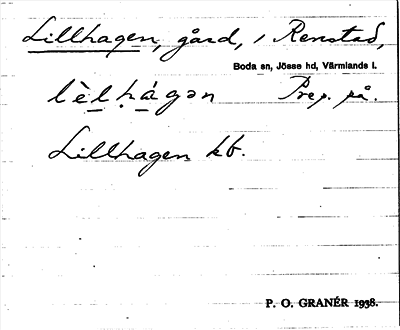 Lillhagen, gård, i Renstad,
Boda sn, Jösse hd, Värmlands l.
lèlḥágən Prep. på.
Lillhagen kb.
P. O. GRANÉR 1938.